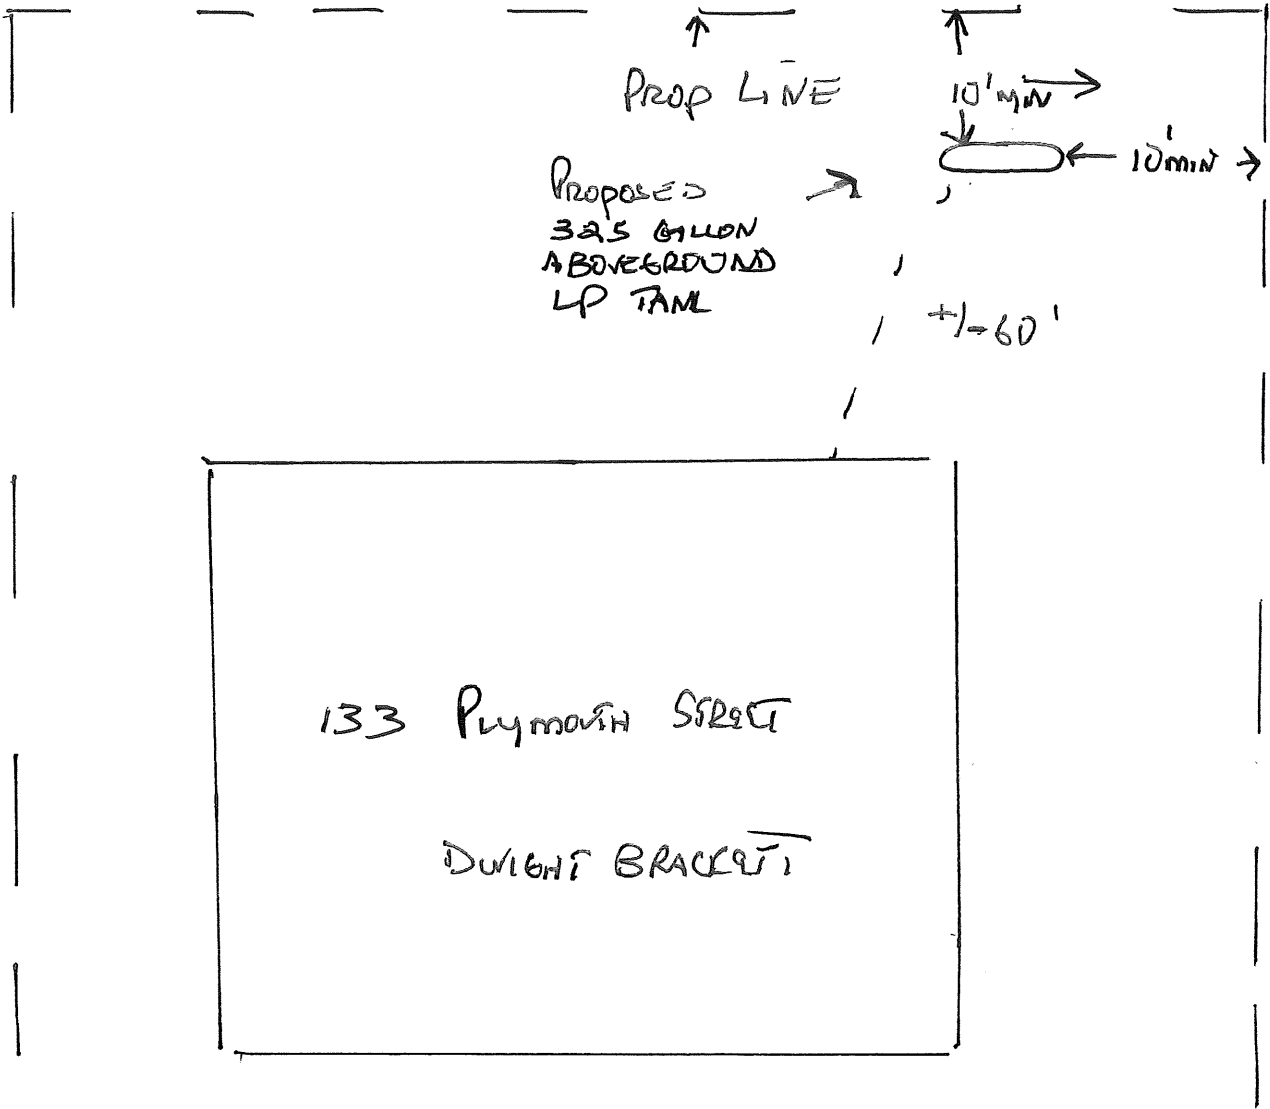 PROP LINE
10' MIN
10' MIN
PROPOSED
325 GALLON
ABOVEGROUND
LP TANK
+/-60'
133 PLYMOUTH STREET
DWIGHT BRACKETT